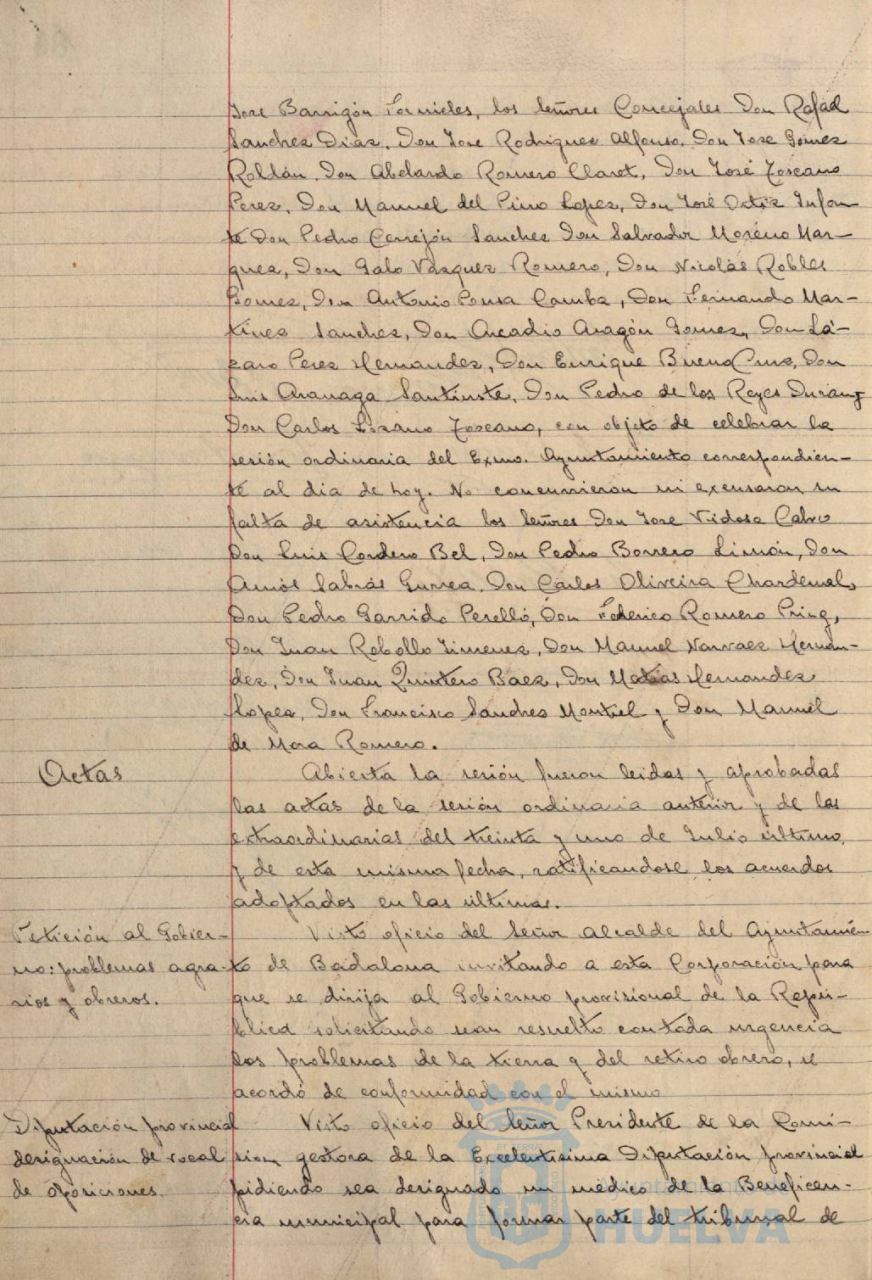 Jose Barrigón Fornieles, los señores Concejales Don Rafael
Sanchez Diaz, Don Jose Rodriguez Alfonso, Don Jose Gomez
Roldán, Don Abelardo Romero Claret, Don José Toscano
Perez, Don Manuel del Pino Lopez, Don José Ortiz Infan-
te Don Pedro Cerrejón Sanchez Don Salvador Moreno Mar-
quez, Don Galo Vazquez Romero, Don Nicolás Robles
Gomez, Don Antonio Ponsa Camba, Don Fernando Mar-
tinez Sanchez, Don Arcadio Aragón Gomez, Don Lá-
zaro Perez Hernandez, Don Enrique Bueno Cruz, Don
Luis Don Pedro de los Reyes Duran y
Don Carlos Lozano Toscano, con objeto de celebrar la
sesión ordinaria del Exmo. Ayuntamiento correspondien-
te al dia de hoy. No concurrieron ni excusaron su
falta de asistencia los señores Don Jose Vidosa Calvo
Don Luis Cordero Bel, Don Pedro Borrero Limón, Don
Amós Sabrás Gurrea, Don Carlos Oliveira Chardenal,
Don Pedro Garrido Perelló, Don Federico Romero
Don Juan Rebollo Jimenez, Don Manuel Narvaez Hernan-
dez, Don Juan Quintero Baez, Don Matías Hernandez
Lopez, Don Francisco Sanchez Montiel y Don Manuel
de Mora Romero.
Actas
Abierta la sesión fueron leidas y aprobadas
las actas de la sesión ordinaria anterior y de las
extraordinarias del treinta y uno de Julio último,
y de esta misma fecha, ratificandose los acuerdos
adoptados en las últimas.
Petición al Gobier-
no: problemas agra-
rios y obreros.
Visto oficio del Señor Alcalde del Ayuntamien-
to de Badalona invitando a esta Corporación para
que se dirija al Gobierno provisional de la Repú-
blica solicitando sean resuelto con toda urgencia
los problemas de la tierra y del retiro obrero, se
acordó de conformidad con el mismo
Diputación provincial
designación de vocal
de oposiciones.
Visto oficio del Señor Presidente de la Comi-
sion gestora de la Excelentisima Diputación provincial
pidiendo sea designado un médico de la Beneficen-
cia municipal para formar parte del tribunal de
HUELVA